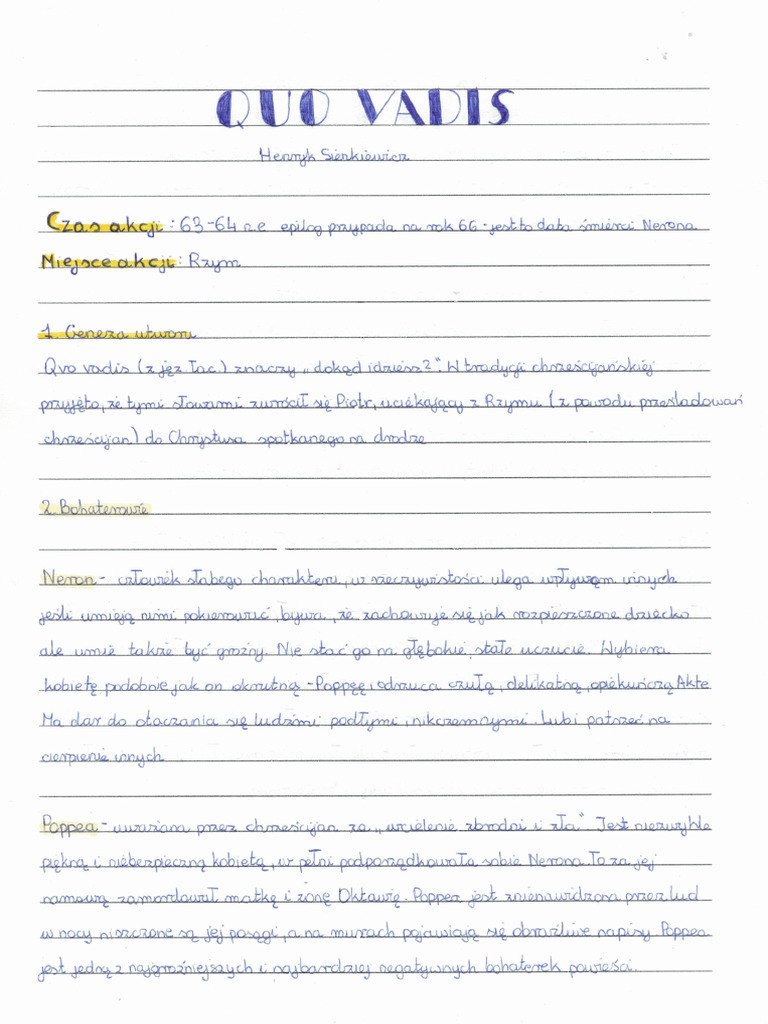 QUO VADIS
Henryk Sienkiewicz
Czas akcji: 63-64 n.e epilog przypada na rok 66 - jest to data śmierci Nerona
Miejsce akcji: Rzym
1. Geneza utworu
Qvo vadis (z jęz łac.) znaczy „dokąd idziesz?". W tradycji chrześcijańskiej
przyjęto, że tymi słowami zwrócił się Piotr, uciekający z Rzymu (z powodu prześladowań
chrześcijan) do Chrystusa spotkanego na drodze
2. Bohaterowie
Neron - człowiek słabego charakteru, w rzeczywistości ulega wpływom innych
jeśli umieją nim pokierować, bywa, że zachowuje się jak rozpieszczone dziecko
ale umie także być groźny. Nie stać go na głębokie, stałe uczucie. Wybiera
kobietę podobnie jak on okrutną - Poppeę i odrzuca czułą, delikatną, opiekuńczą Akte
Ma dar do otaczania się ludźmi podłymi, nikczemnymi. Lubi patrzeć na
cierpienie innych
Poppea - uważana przez chrześcijan za „wcielenie zbrodni i zła" Jest niezwykle
piękną i niebezpieczną kobietą, w pełni podporządkowała sobie Nerona. To za jej
namową zamordował matkę i żonę Oktawię. Poppea jest znienawidzona przez lud
w nocy niszczone są jej posągi, a na murach pojawiają się obraźliwe napisy. Poppea
jest jedną z najgroźniejszych i najbardziej negatywnych bohaterek powieści.